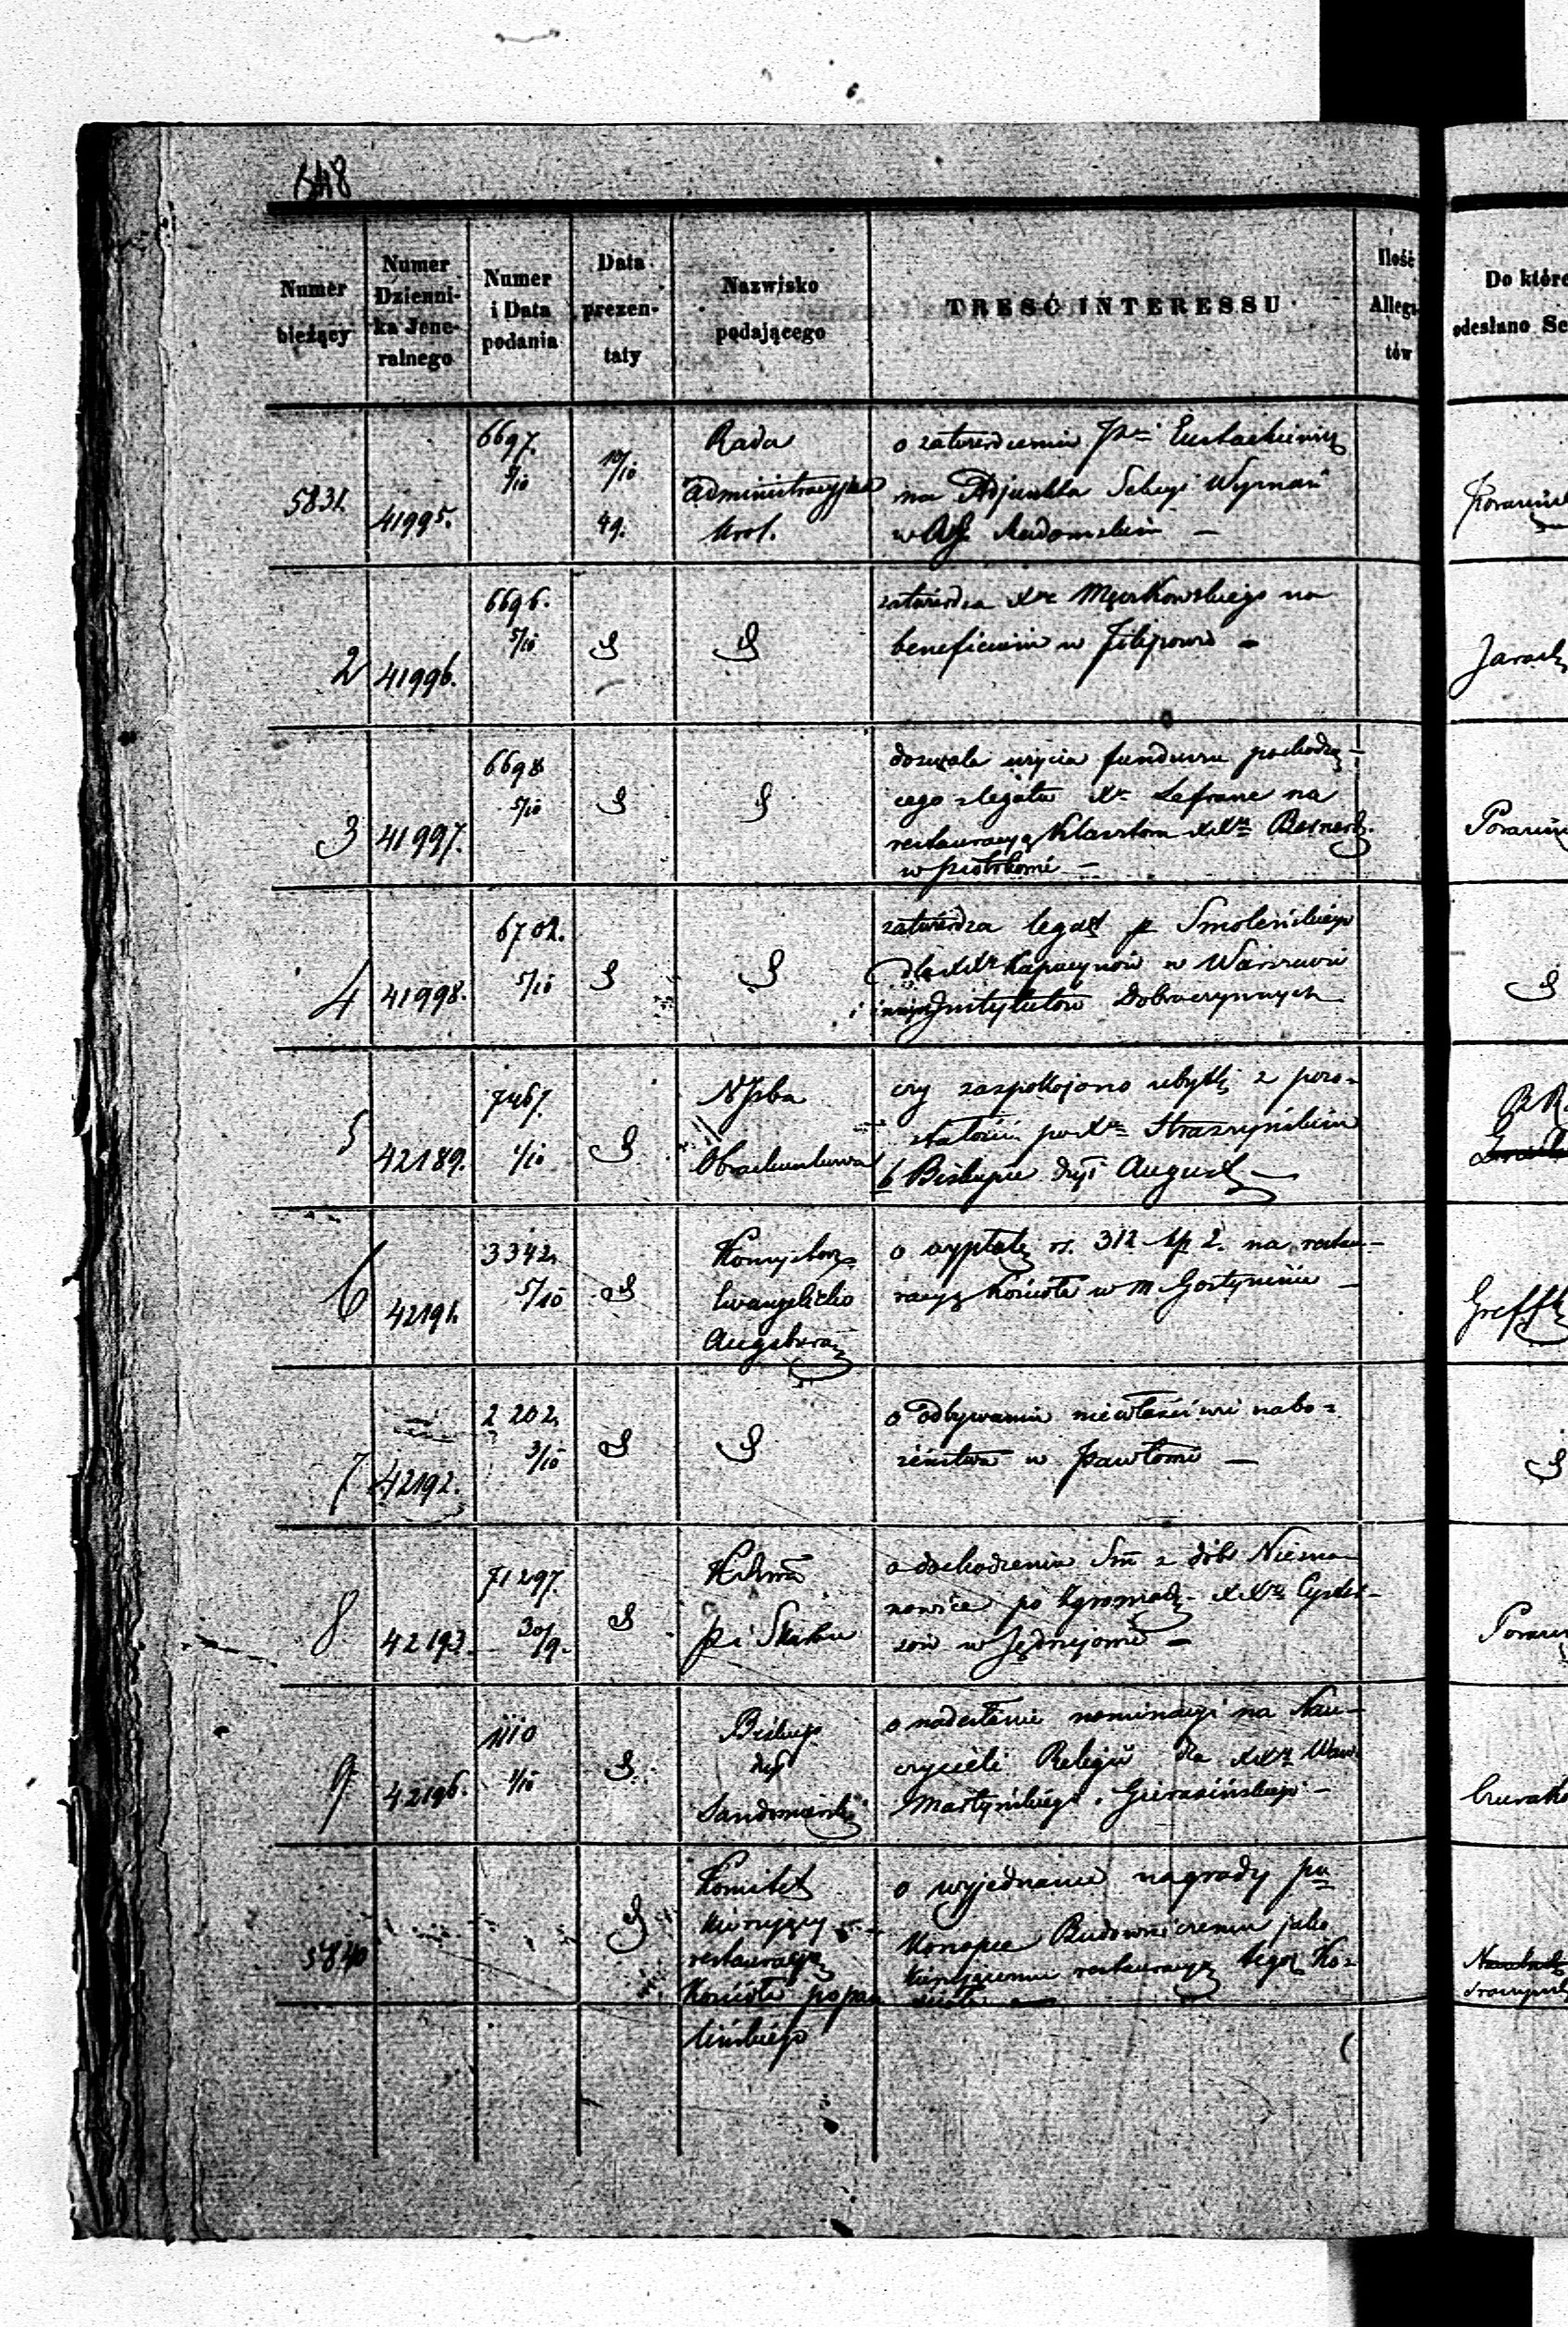 548
Numer
bieżący
Numer
Dzienni-
ka Jene-
ralnego
Numer
i Data
podania
Data
prezen-
taty
Nazwisko
podającego
TREŚĆ INTERESSU
Ilość
Allega-
tów
Do które
odesłano Se
5831.
41995.
6697.
5/10
10/10
49.
Rada
Administracyjna
Król.
o zatwierdzeniu
na Adjunkta Sekcyi Wyznań
w Radomskim —
2
41996.
6696.
5/10
zatwierdza Xdza Męczkowskiego na
beneficium w Filipowie —
3
41997.
6698
5/10
dozwala użycia funduszu pochodzą-
cego z legatu Xa Lefranc na
restauracyą Klasztoru XXX Bernard.
w Piotrkowie —
4
41998.
6702.
5/10
zatwierdza legat p Smoleńskiego
dla XX Kapucynów w Warszawie
i innych Instytutów Dobroczynnych
5
42189.
7467.
1/10
N Izba
Obrachunkowa
czy zaspokojono ubytki z pozo-
stałości po Xdzu Straszyńskim
b Biskupie dyi August
6
42191.
3342.
5/10
Konsystorz
Ewangelicko
Augsburs
o wypłatę rs. 312 kp 2. na restau-
racyą Kościoła w m Gostyninie —
Greff
7
42192.
2202.
3/10
o odbywaniu niewłaściwie nabo-
żeństwa w Pawłowie —
8
42193.
71297.
30/9.
P i Skarbu
o dochodzeniu Sm z dóbr Niezna-
nowice po Zgromadz. XXX Cyster-
sów w Jędrzejowie —
9
42196.
1110
1/10
Biskup
dyi
Sandomierski
o nadesłanie nominacyi na Nau-
czycieli Religii dla XX
Martyńskiego i Gierasińskiego —
5840
Komitet
kierujący
restauracyą
Kościoła popau-
lińskiego
o wyjednanie nagrody pu
Konopce Budowniczemu jako
kierującemu restauracyą tegoż Ko-
ścioła —